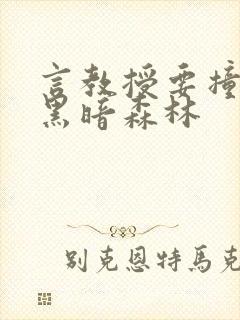 言教授要撞
黑暗森林
别克恩特馬克